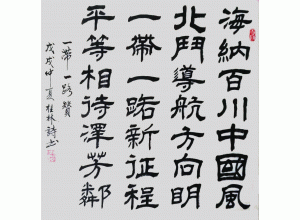 海納百川中國風
北鬥導航方向明
一帶一路新征程
平等相待澤芳鄰
一帶一路贊
戊戌仲夏桂林詩书